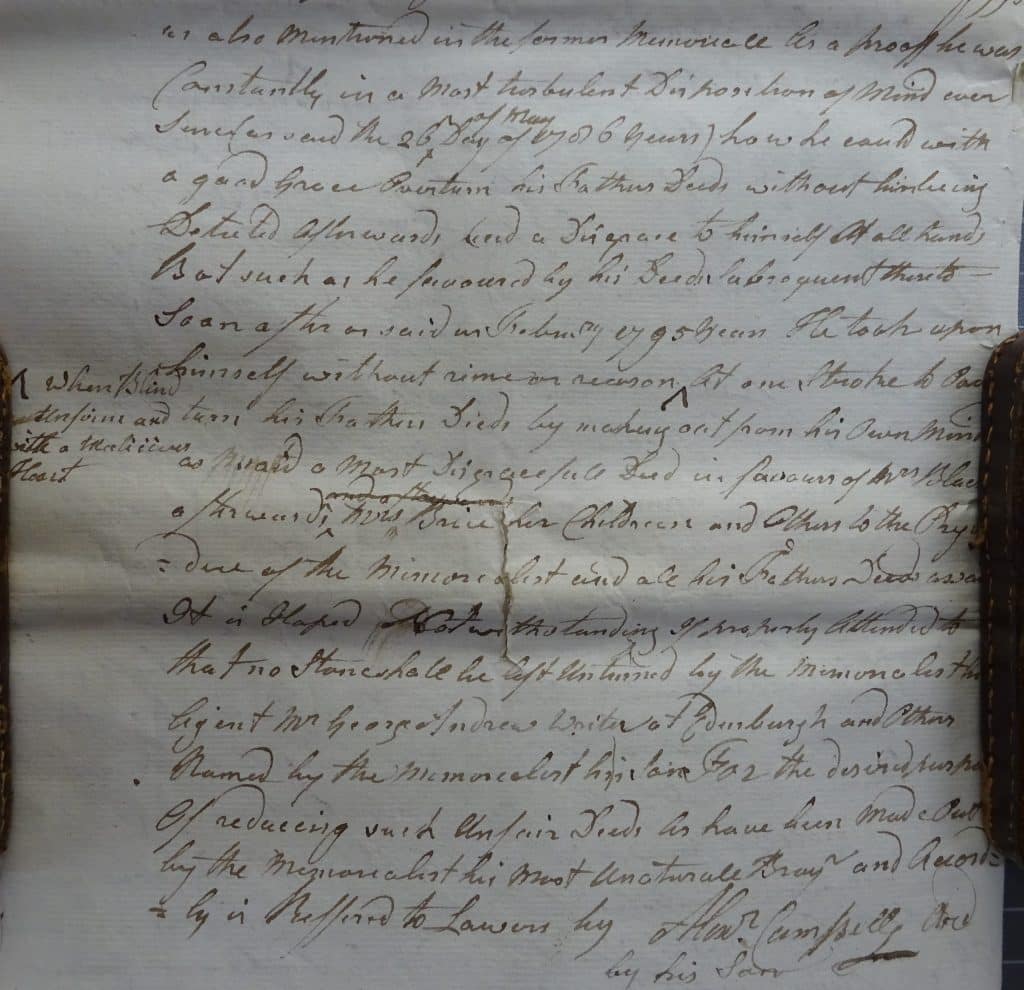 as also Mentioned in the former Memoreall As a proof he was
Constantly in a Most turbulent Disposition of Mind ever
of May
Since as said the 26 Day of 1786 Years) how he could with
a good Grace Overturn his Fathers Deeds without his being
Detected Afterwards and a Disgrace to himself At all hands
But such as he favoured by his Deeds Subsequent thereto =
Soon after as said in Febru^ry 1795 Years He took upon
himself without rime or reason ^ At one Stroke to
^ When Blind
Unfirm and
with a Malicious
Heart
turn his Fathers Deeds by making out from his Own Mind
as said a Most Disgracefull Deed in favours of Mrs Blac
afterwards Mrs Brice her Childrean and Others to the Preju
= dice of the Memorealist and all his Fathers Deeds
It is Hoped Notwithstanding If properly Attended to
that no Stone shall be left Unturned by the Memorealist his
Agent Mr George Andrew Writer at Edinburgh and Others
Named by the Memorealist his son For the desired purpo
Of reduceing such Unfair Deeds As have been Made Out
by the Memorealist his Most Unaturall and Accord=
= ly is Reffered to Lawers by Alexr. Campbell
by his Son